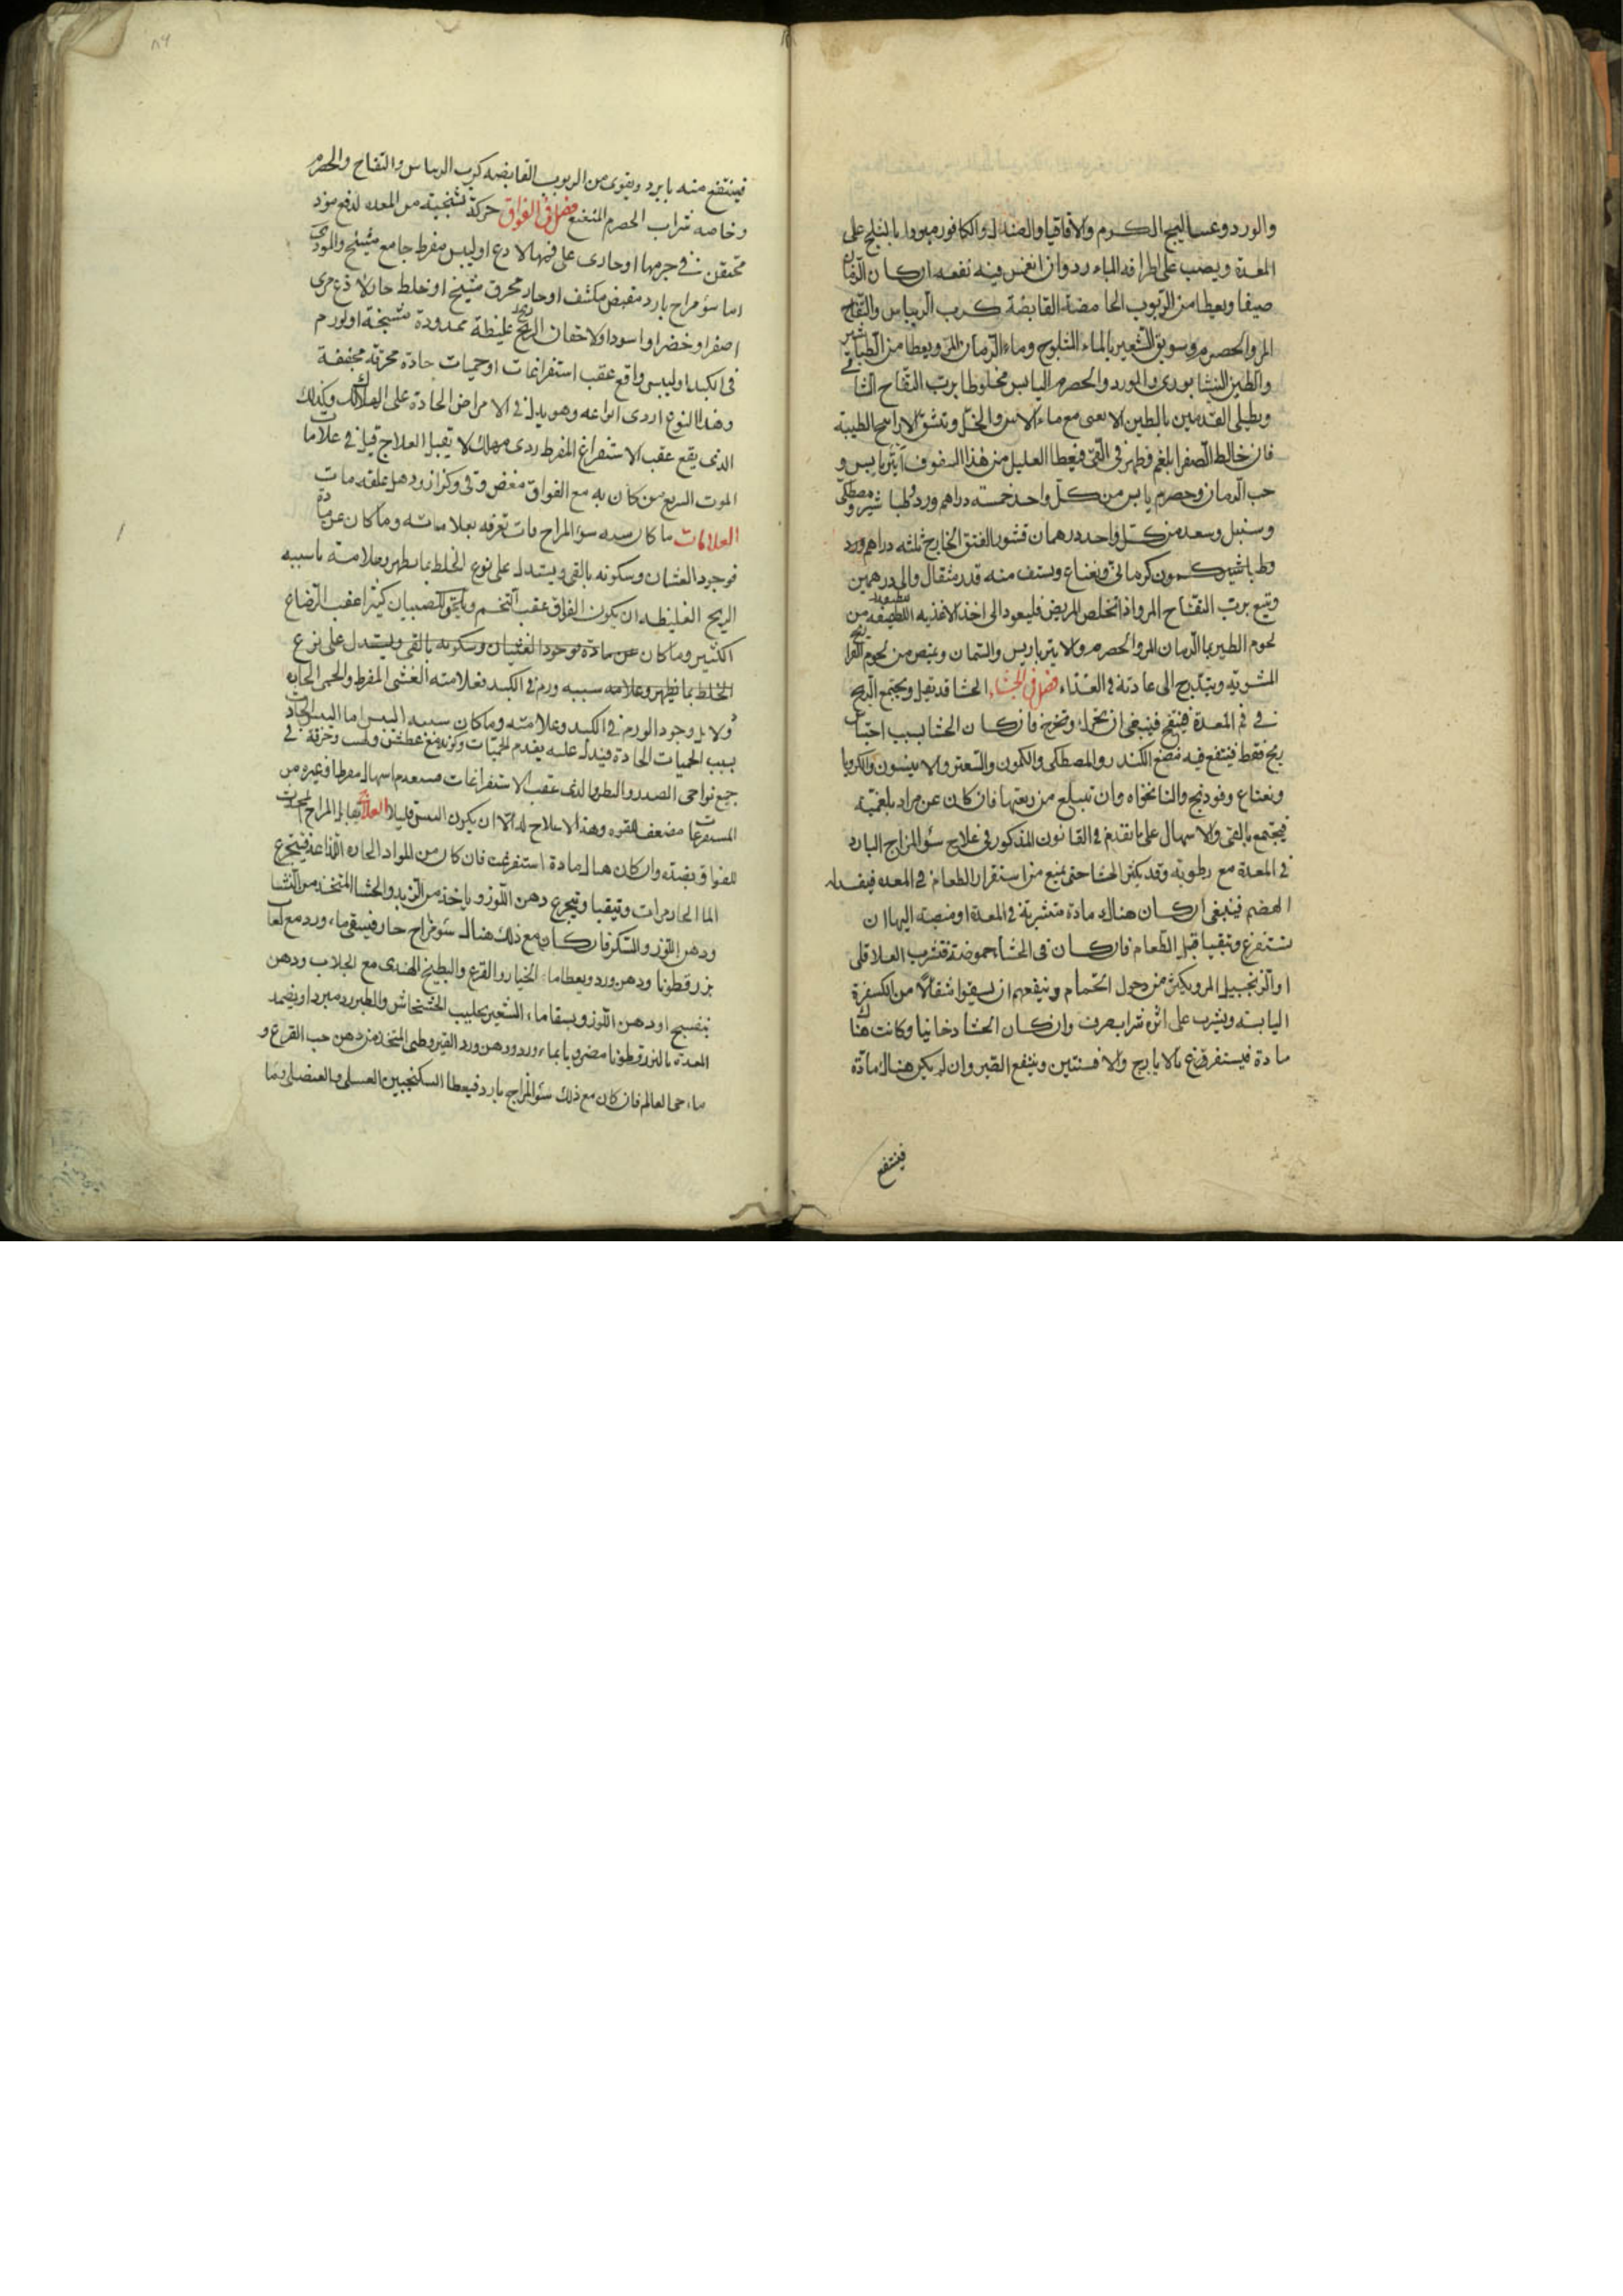 والورد وعساليج الكرم والاقاقيا والصندل والكافور مبردا بالثلج على
المعدة ويصب على اطرافه الماء بارد وان انغمس فيه نفعه ان كان الزمان
صيفا ويعطا من الربوب الحامضة القابضة كرب الريباس والتفاح
المز والحصرم وسويق الشعير بالماء المثلوج وماء الرمان المز ويعطا من الطباشير
والطين النيشابوري والورد والحصرم اليابس مخلوطا برب التفاح الشامي
ويطلى القدمين بالطين الارمني مع ماء الاس والخل وتشق الارايح الطيبة
فان خالط الصفرا بلغم وظهر في القي فيعطا العليل من هذا السفوف يابس و
حب الرمان وحصرم يابس من كل واحد خمسة دراهم ورد وطباشير ومصطكى
وسنبل وسعد من كل واحد درهمان قشور الفستق الخارج ثلثه دراهم ورد
وطباشير كمون كرماني ونعناع ويستف منه قدر مثقال والى درهمين
ويتبع برب التفاح المز واذا تخلص المريض فليعود الى اخذ الاغذيه اللطيفة من
لحوم الطير بالرمان المز والحصرم والانبرباريس والسمان ويمتص من لحوم الفراريج
المشويه ويتدرج الى عادته في الغذاء فصل في الجشاء الجشا قد يقل ويجتمع الريح
في فم المعدة فينتفخ فينبغي ان يحرك وتخرج فان كان الجشا بسبب احتباس
ريح فقط فينتفع فيه مضغ الكندر والمصطكى والكمون والسعتر والانيسون والكرويا
ونعناع وفودنج والنانخواه وان تبلع من ريقتها فان كان عن مواد بلغمية
فيجتمع بالقي والاسهال على ما تقدم في القانون المذكور في علاج سؤ المزاج البارد
في المعدة مع رطوبة وقد يكثر الجشا حتى يمنع من استقرار الطعام في المعده فيفسد
الهضم فينبغي ان كان هناك مادة متشربة في المعدة او منصبة اليها ان
تستفرغ ويتقيا قبل الطعام فان كان في الجشاء حموضة فتشرب
او الزنجبيل المر ويكثر من دخول الحمام وينفعهم ان يسقوا مثقالا من الكسفرة
اليابسه ويشرب على اثره شراب صرف وان كان الجشا دخانيا وكانت هناك
مادة فيستفرغ بالايارج والافسنتين وينتفع الصبر وان لم يكن هناك مادة
فينتفع
فينتفع منه بما يبرد ويقوى من الربوب القابضه كرب الريباس والتفاح والحصرم
وخاصه شراب الحصرم المنعنع فصل في الفواق حركة تشنجية من المعده لدفع موذ
محتقن في جرمها او حاوى على فمها لاذع او ليبس مفرط جامع مشنج والموذى
اما سؤ مزاج بارد مقبض مكثف او حار محرق مشنج او خلط حار لاذع مرى
اصفر او خضر او اسود او لاحتقان الريح غليظة ممدودة مشنجة او لورم
في الكبد او ليبس واقع عقب استفراغات او حميات حادة محرقة مجففة
وهذا النوع اردى انواعه وهو يدل في الامراض الحادة على الهلاك وكذلك
الذى يقع عقب الاستفراغ المفرط ردى مهلك لا يقبل العلاج قيل في علامات
الموت السريع من كان به مع الفواق مغص وقي وكزاز وذهل عقله مات
العلامات ما كان سببه سؤ المزاج فانت تعرفه بعلاماته وما كان عن مادة
فوجود الغثيان وسكونه بالقي ويستدل على نوع الخلط بما يظهر وعلامة ما سببه
الريح الغليظه ان يكون الفواق عقب التخم ويلحق للصبيان كثيرا عقب الرضاع
الكثير وما كان عن مادة فوجود الغثيان وسكونه بالقي ويستدل على نوع
الخلط بما يظهر وعلامه سببه ورم في الكبد فعلامته الغشي المفرط والحمى الحاده
ودلايل وجود الورم في الكبد وعلامته وما كان سببه اليبس اما اليبس الحادث
بسبب الحميات الحادة فيدل عليه تقدم الحميات وكونه مع عطش ولهب وحرقة في
جميع نواحي الصدر والبطن والذى عقب الاستفراغات فيتقدم اسهال مفرط او غيره من
المستفرغات مضعف للقوه وهذا لا علاج له الا ان يكون اليبس قليلا العلاج يقابل المزاج المحدث
للفواق بضده وان كان هناك مادة استفرغت فان كان من المواد الحاره اللذاعة فيتجرع
الما الحار مرات ويتقيا ويتجرع دهن اللوز وياخذ من الزبد والحشا المتخذ من النشا
ودهن اللوز والسكر فان كان مع ذلك هناك سؤ مزاج حار فيسقى ماء ورد مع لعاب
بزرقطونا ودهن ورد ويعطا ماء الخيار والقرع والبطيخ الهندى مع الجلاب ودهن
بنفسج او دهن اللوز ويسقا ماء الشعير بحليب الخشخاش والطبرزد مبردا ويضمد
المعدة بالبزرقطونا مضروبا بماء ورد ودهن ورد القيروطى المتخذ من دهن حب القرع و
ماء حى العالم فان كان مع ذلك سؤ المزاج بارد فيعطا السكنجبين العسلى والعنصلى وما